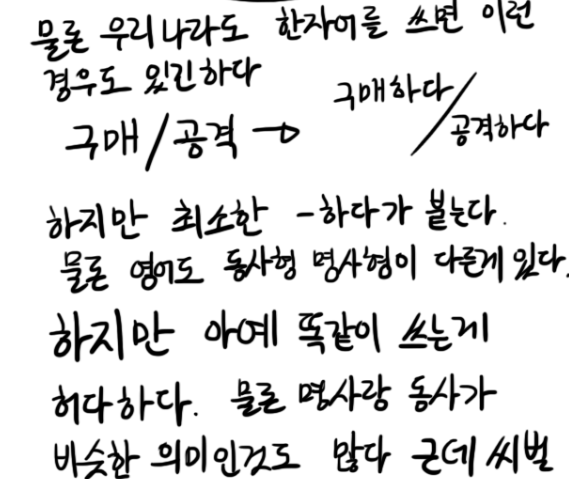 물론 우리나라도 한자어를 쓰면 이런
경우도 있긴하다
구매/공격 → 구매하다/공격하다
하지만 최소한 -하다가 붙는다.
물론 영어도 동사형 명사형이 다른게 있다.
하지만 아예 똑같이 쓰는게
허다하다. 물론 명사랑 동사가
비슷한 의미인것도 많다 근데 씨벌